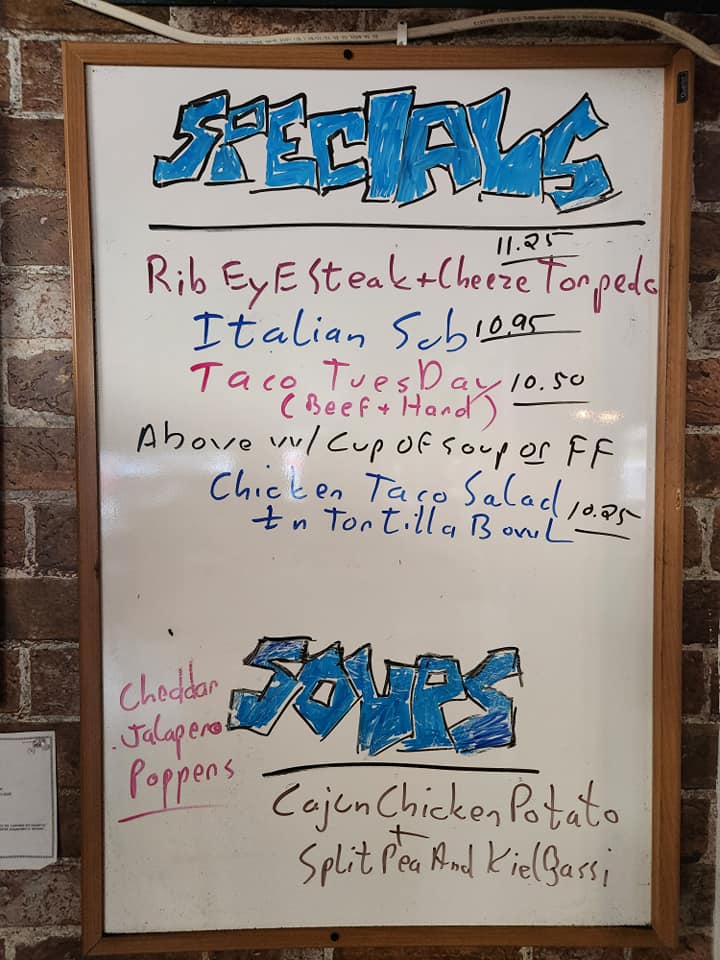 SPECIALS
11.25
Rib EyE Steak + Cheeze Torpedo
Italian Sub 10.95
Taco TuesDay 10.50
(Beef + Hard)
Above w/ Cup OF Soup or FF
Chicken Taco Salad
In Tortilla Bowl 10.25
SOUPS
Cheddar
Jalapeno
Poppens
Cajun Chicken Potato
+
Split Pea And KielBassi